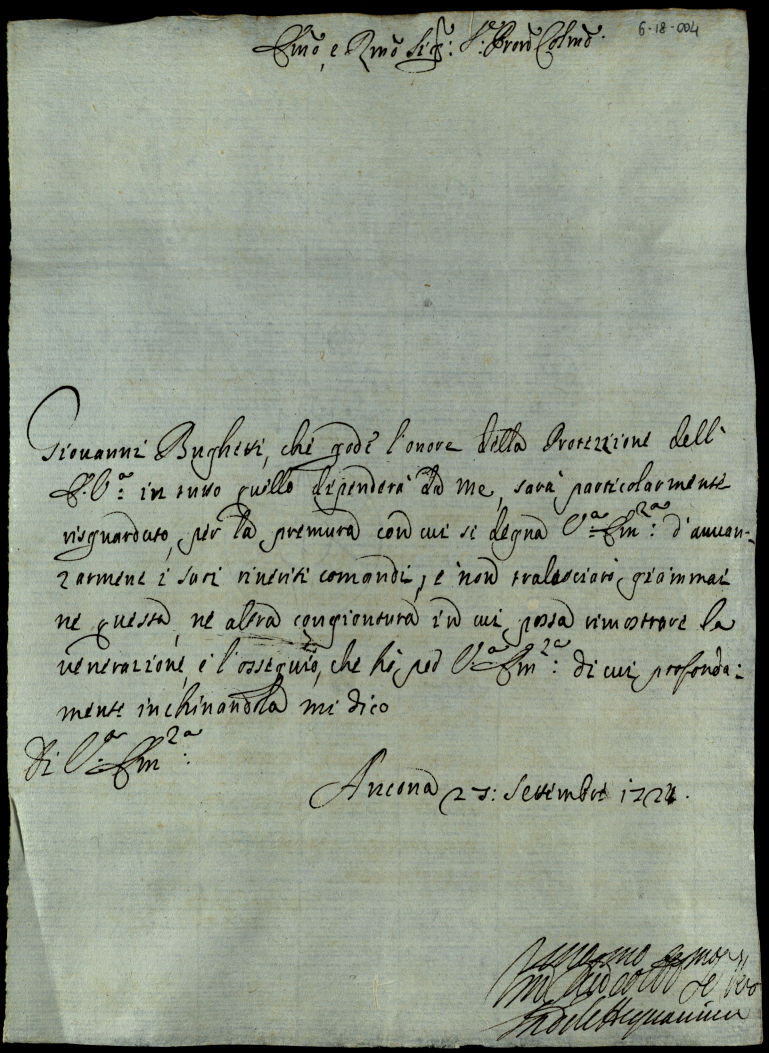 6-18-004
Emo, e Rmo Sig: Pron Colmo.
Giovanni Bughetti, che gode l'onore della Protezzione dell'
E. V.a: in tutto quello dipenderà da me, sarà particolarmente
risguardato, per la premura con cui si degna V.a Em.za: d'avvan-
zarmene i suoi riveriti comandi, e non tralasciarò giammai
ne questa, ne altra congiontura in cui possa rimostrare la
venerazione, e l'ossequio, che hò per V.a Em.za: di cui profonda:
mente inchinandola mi dico
Di V.a Em.za:
Ancona 23: Settembre 1724.